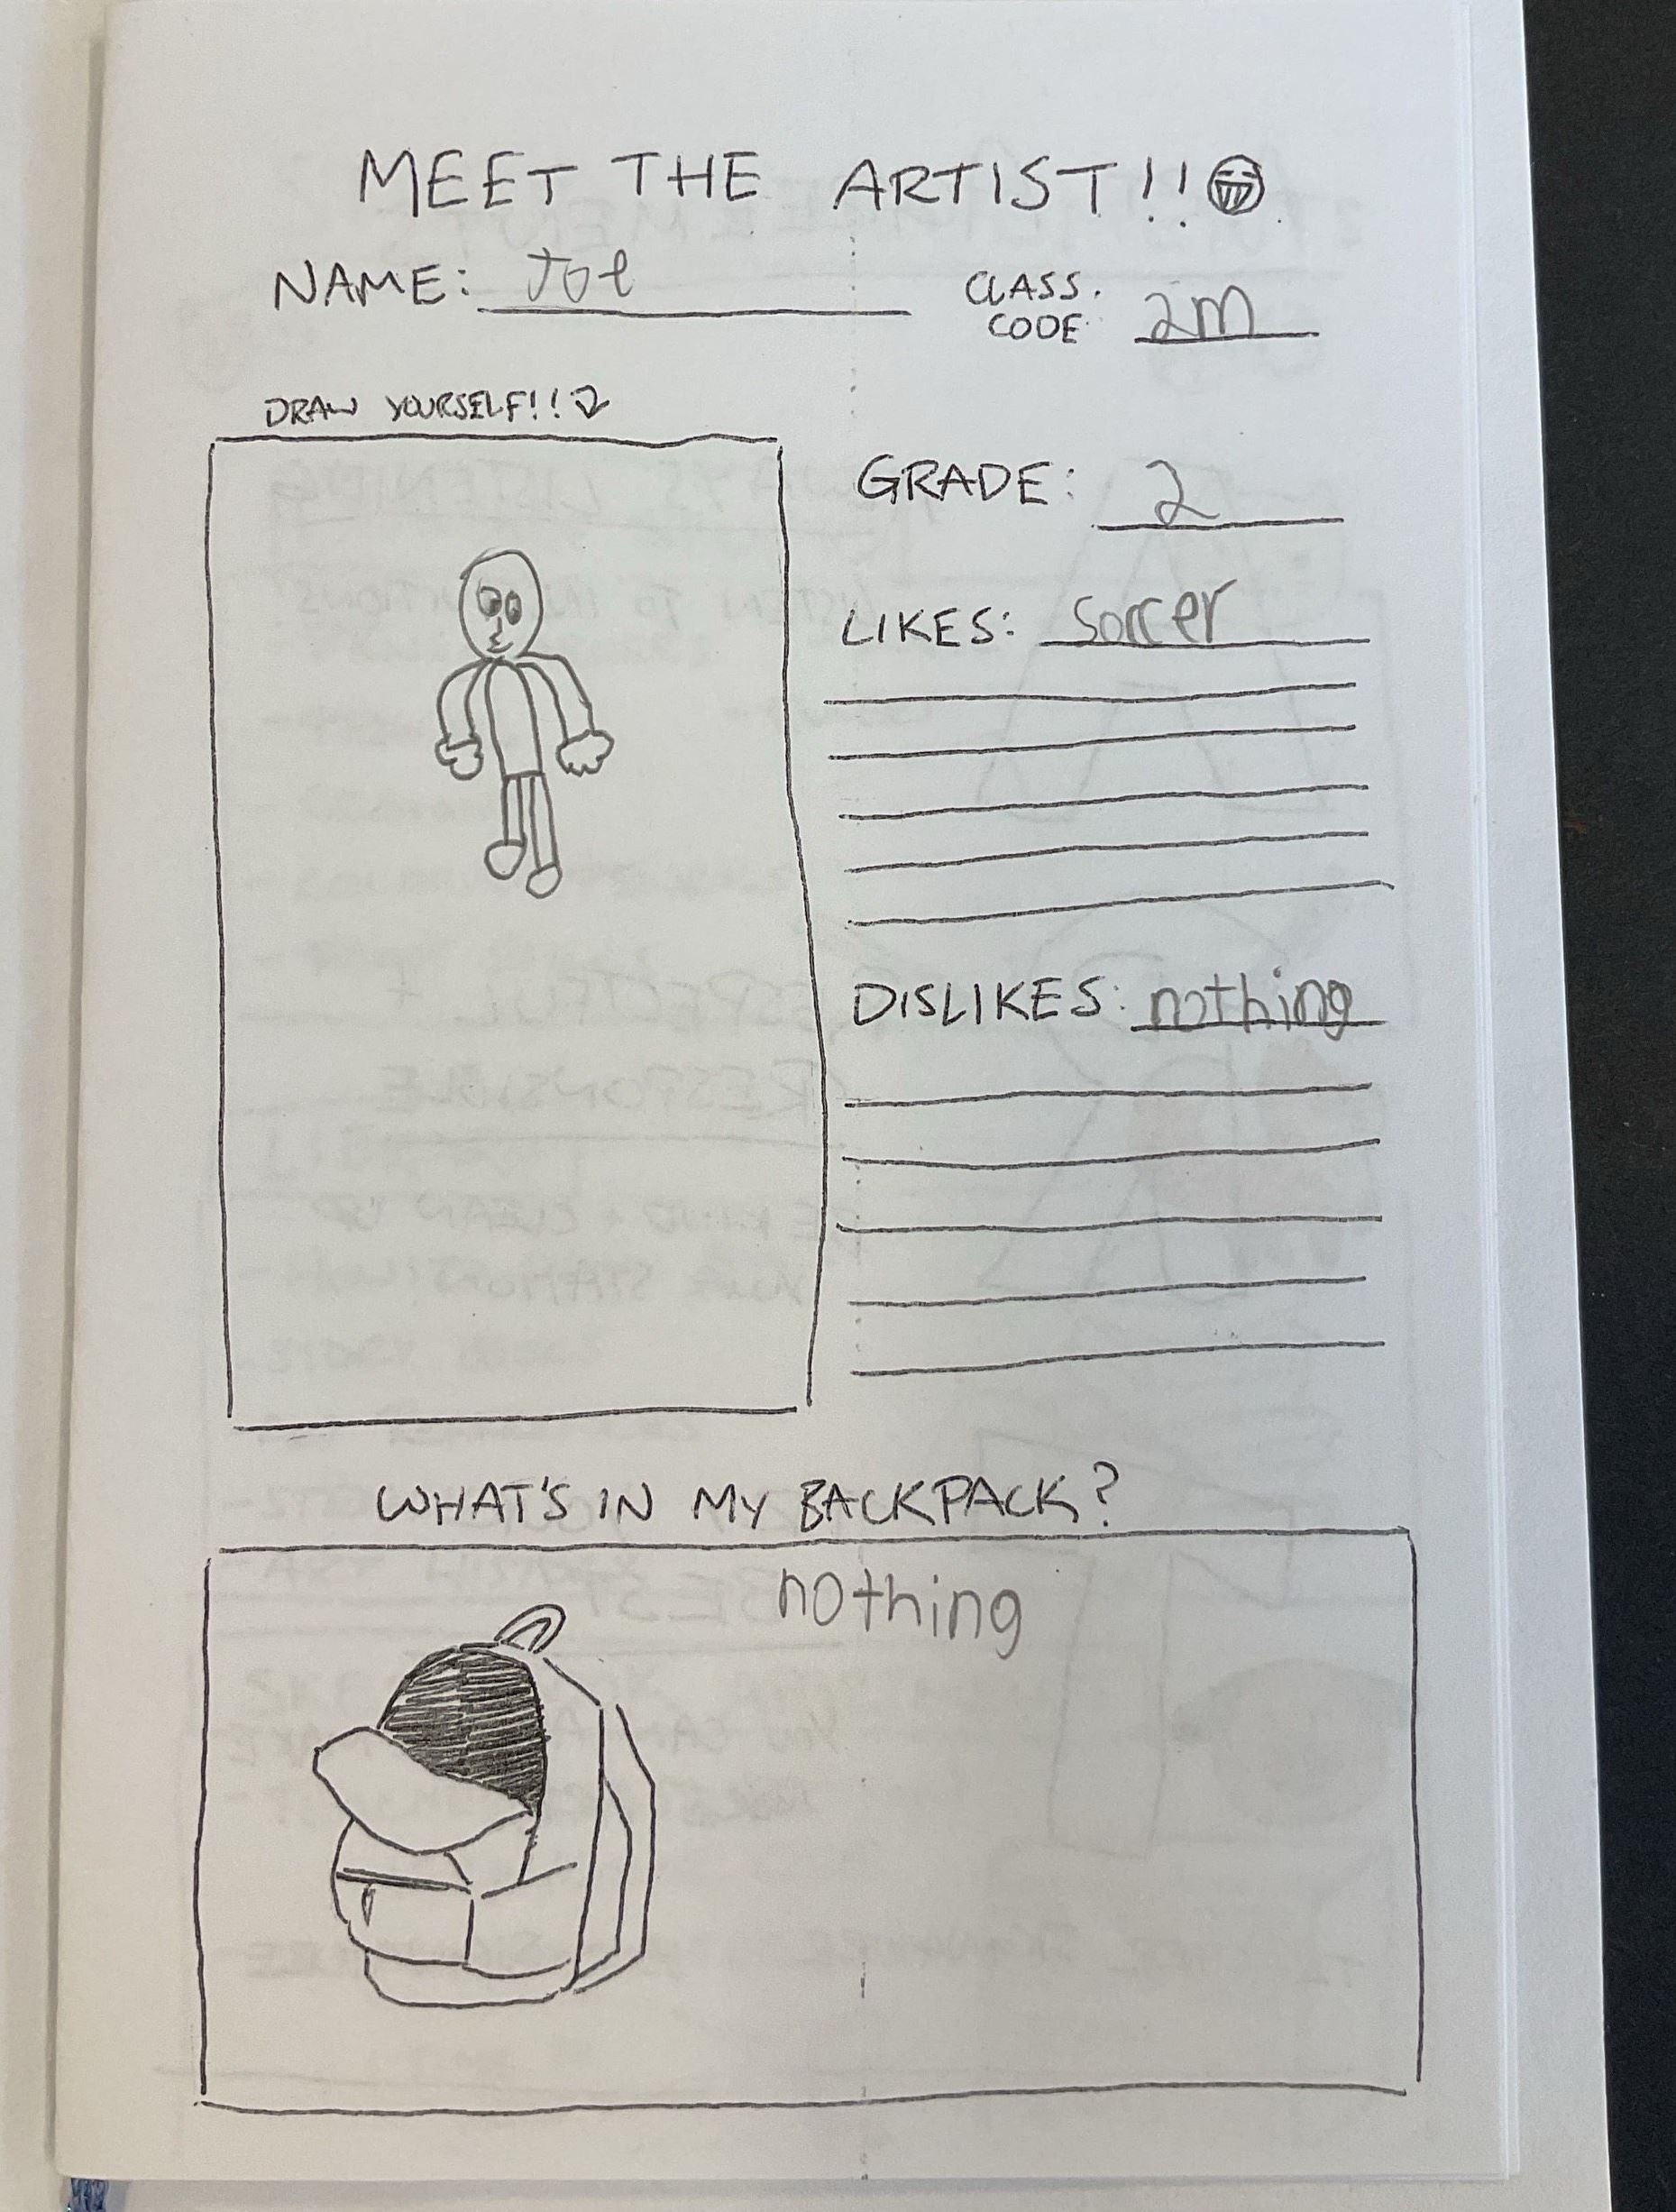 MEET THE ARTIST!!
NAME: Joe
CLASS CODE: 2m
DRAW YOURSELF!!
GRADE: 2
LIKES: Sorcer
DISLIKES: nothing
WHAT'S IN MY BACKPACK?
nothing